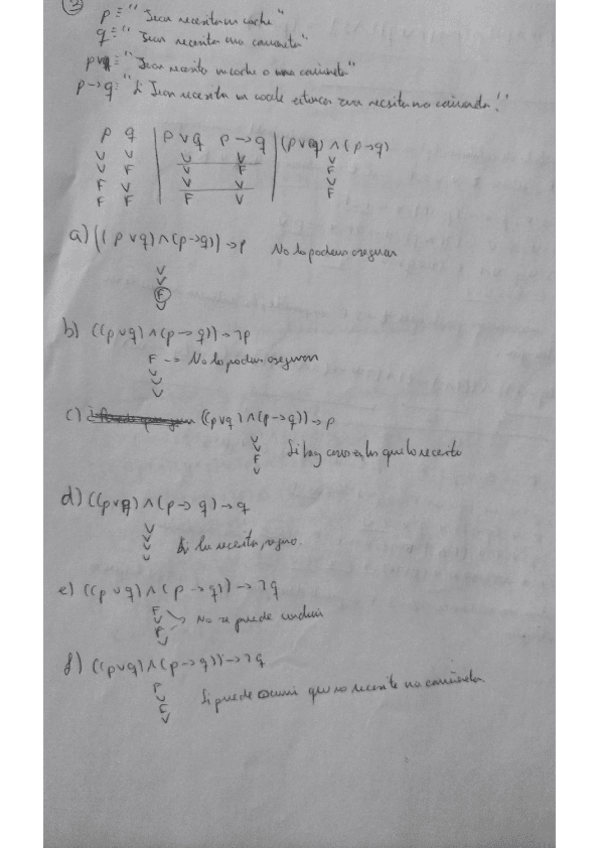 ③
p ≡ "Juan necesita un coche"
q ≡ "Juan necesita una camioneta"
p∨q ≡ "Juan necesita un coche o una camioneta"
p→q ≡ "Si Juan necesita un coche entonces Juan necesita una camioneta"
p q | p∨q p→q | (p∨q)∧(p→q)
V V | V V | V
V F | V F | F
F V | V V | V
F F | F V | F
a) ((p∨q)∧(p→q))→p No lo podemos asegurar
V
V
F
V
b) ((p∨q)∧(p→q))→¬p
F → No lo podemos asegurar
V
V
V
c) ((p∨q)∧(p→q))→p
V
V
F Si hay casos en los que lo necesita
V
d) ((p∨q)∧(p→q)→q
V
V
V Si la necesita, seguro.
V
e) ((p∨q)∧(p→q))→¬q
F
V No se puede concluir
F
V
f) ((p∨q)∧(p→q))→¬q
F
V Si puede ocurrir que no necesite una camioneta
F
V